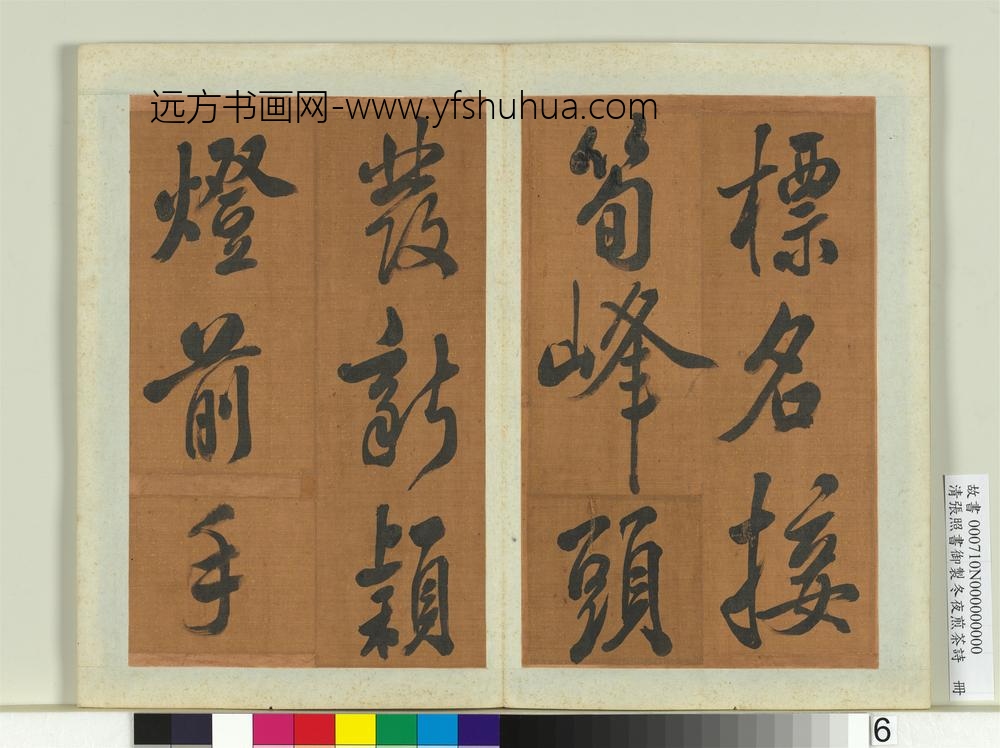 远方书画网-www.yfshuhua.com
標名接
筍峰頭
發新穎
燈前手
故書 000710N000000000
清張照書御製冬夜煎茶詩 冊
6